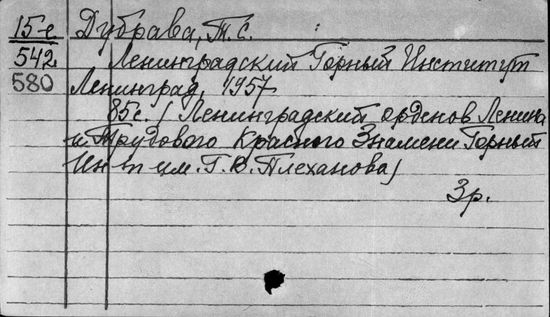 15-е Дубрава, Т.С.
542. Ленинградский Горный Институт
580 Ленинград, 1957
85с. (Ленинградский орденов Ленина
и Трудового Красного Знамени Горный
Ин-т им. Г.В. Плеханова)
3р.